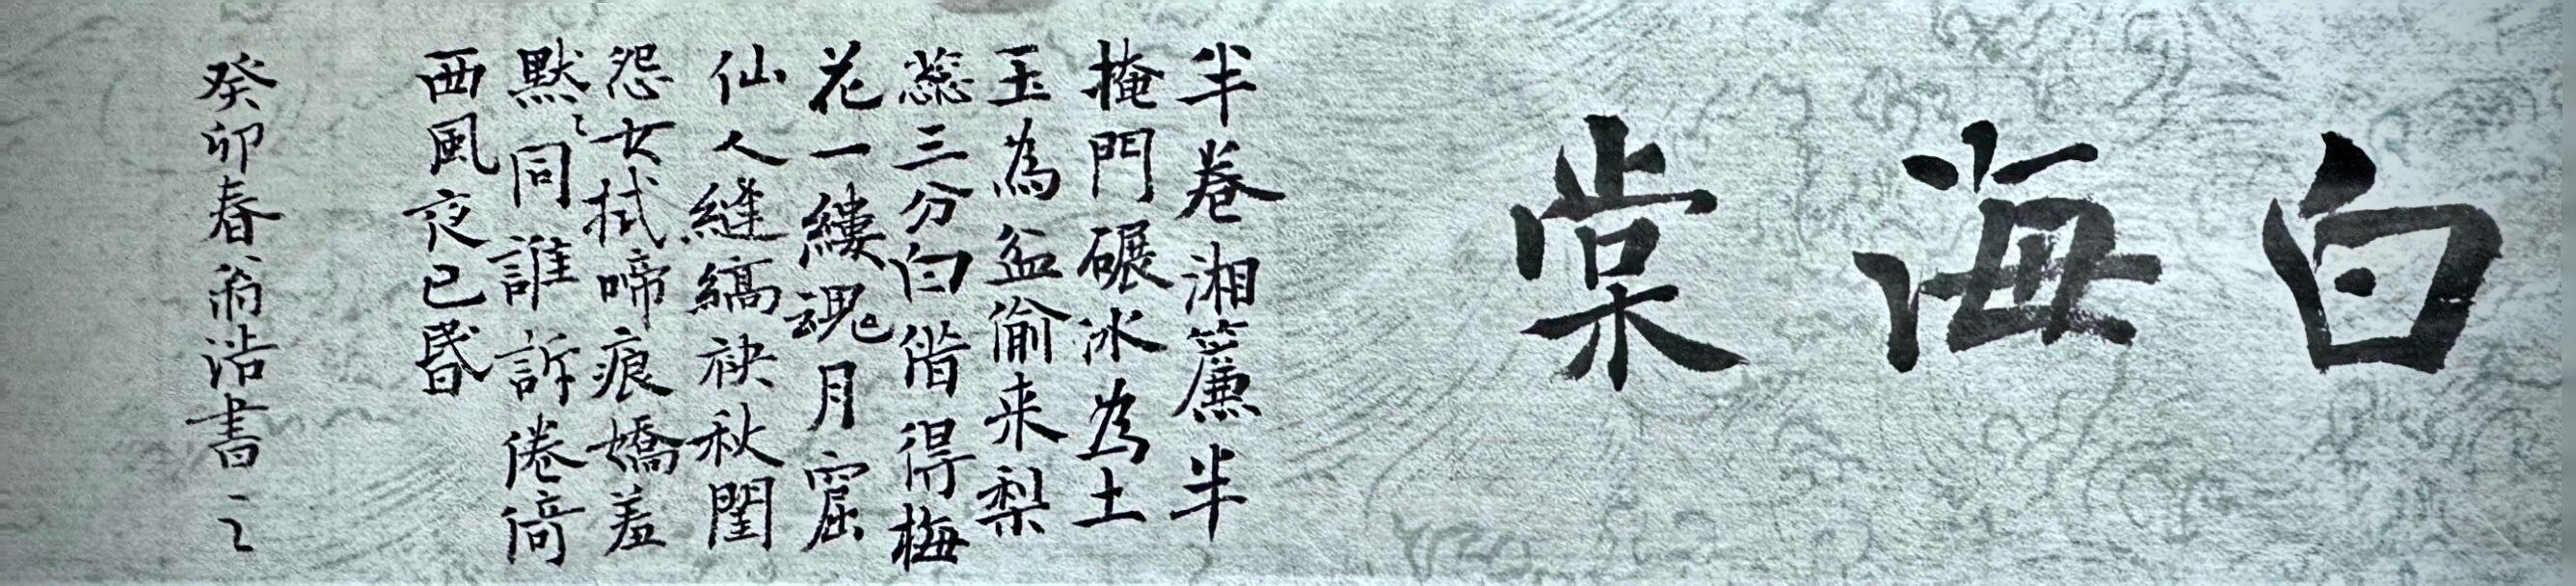 白海棠
半卷湘簾半
掩門碾冰為土
玉為盆偷来梨
蕊三分白偕得梅
花一縷魂月窟
仙人縫縞袂秋閨
怨女拭啼痕嬌羞
默々同誰訴倦倚
西風夜已昏
癸卯春 書之